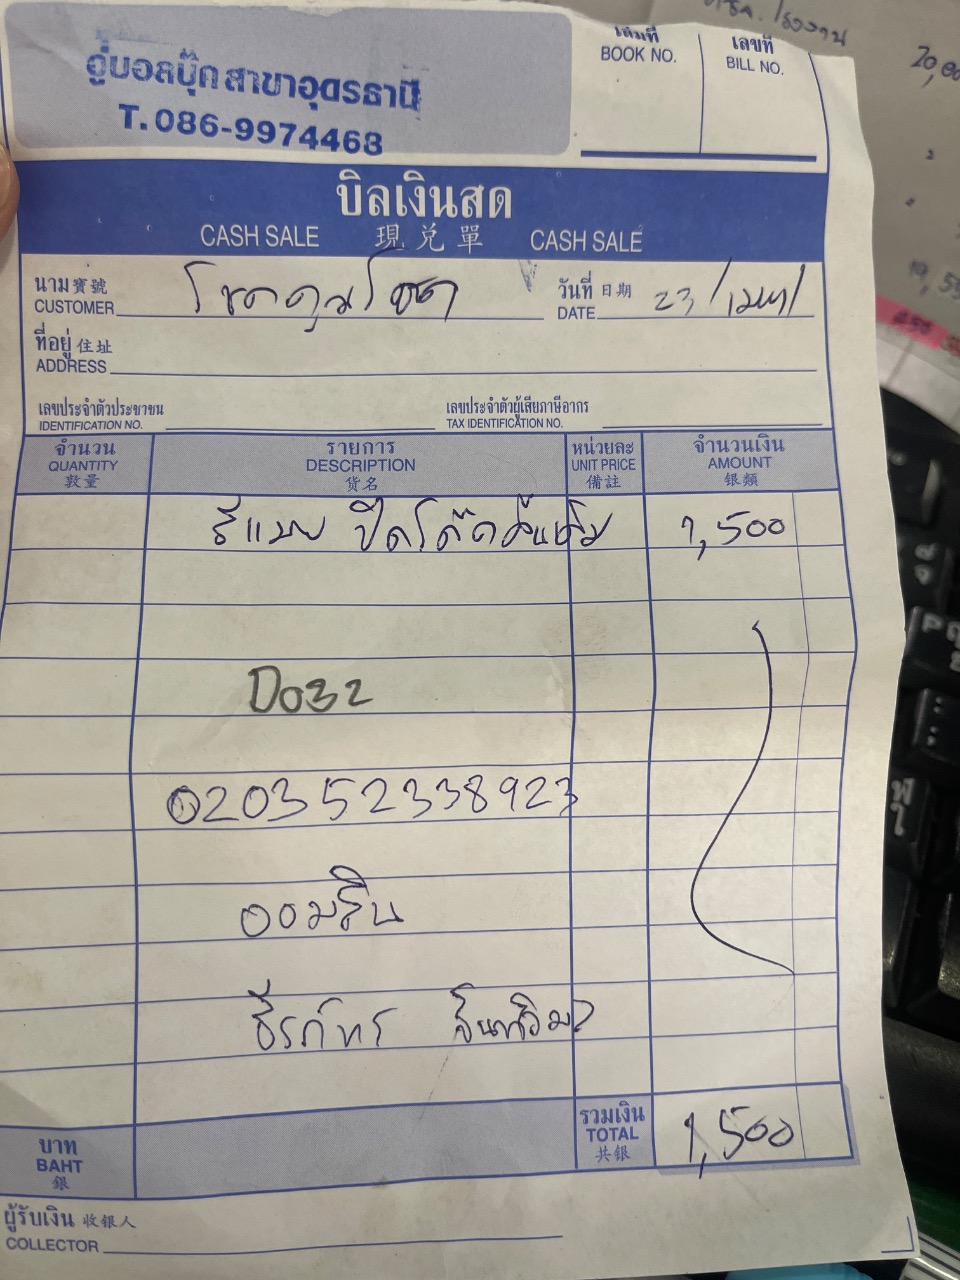 อู่บอลบุ๊ค สาขาอุดรธานี
T.086-9974468
เล่มที่
BOOK NO.
เลขที่
BILL NO.
บิลเงินสด
CASH SALE 現兌單 CASH SALE
นาม 寳號
CUSTOMER โชคคูณโชค
วันที่ 日期
DATE 23/เมษา
ที่อยู่ 住址
ADDRESS
เลขประจำตัวประชาชน
IDENTIFICATION NO.
เลขประจำตัวผู้เสียภาษีอากร
TAX IDENTIFICATION NO.
จำนวน
QUANTITY
数量
รายการ
DESCRIPTION
貨名
หน่วยละ
UNIT PRICE
備註
จำนวนเงิน
AMOUNT
银額
รีแมพ ปิดโค๊ด 1,500
D032
020352338923
ออมสิน
ธีรภัทร
บาท
BAHT
銀
รวมเงิน
TOTAL
共银
1,500
ผู้รับเงิน 收銀人
COLLECTOR